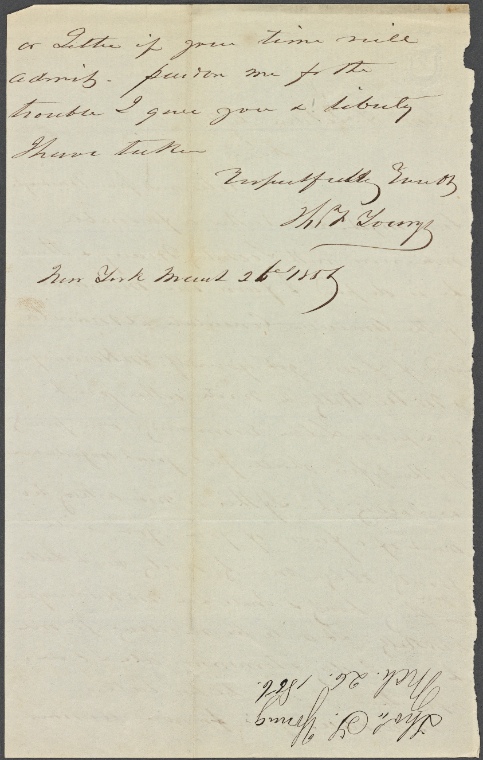 or Letter if your time will
admit. pardon me for the
trouble I gave you & liberty
I have taken
Respectfully Yours
Thos F Young
New York March 26th 1856
Thos. F. Young
Mch. 26. 1856.